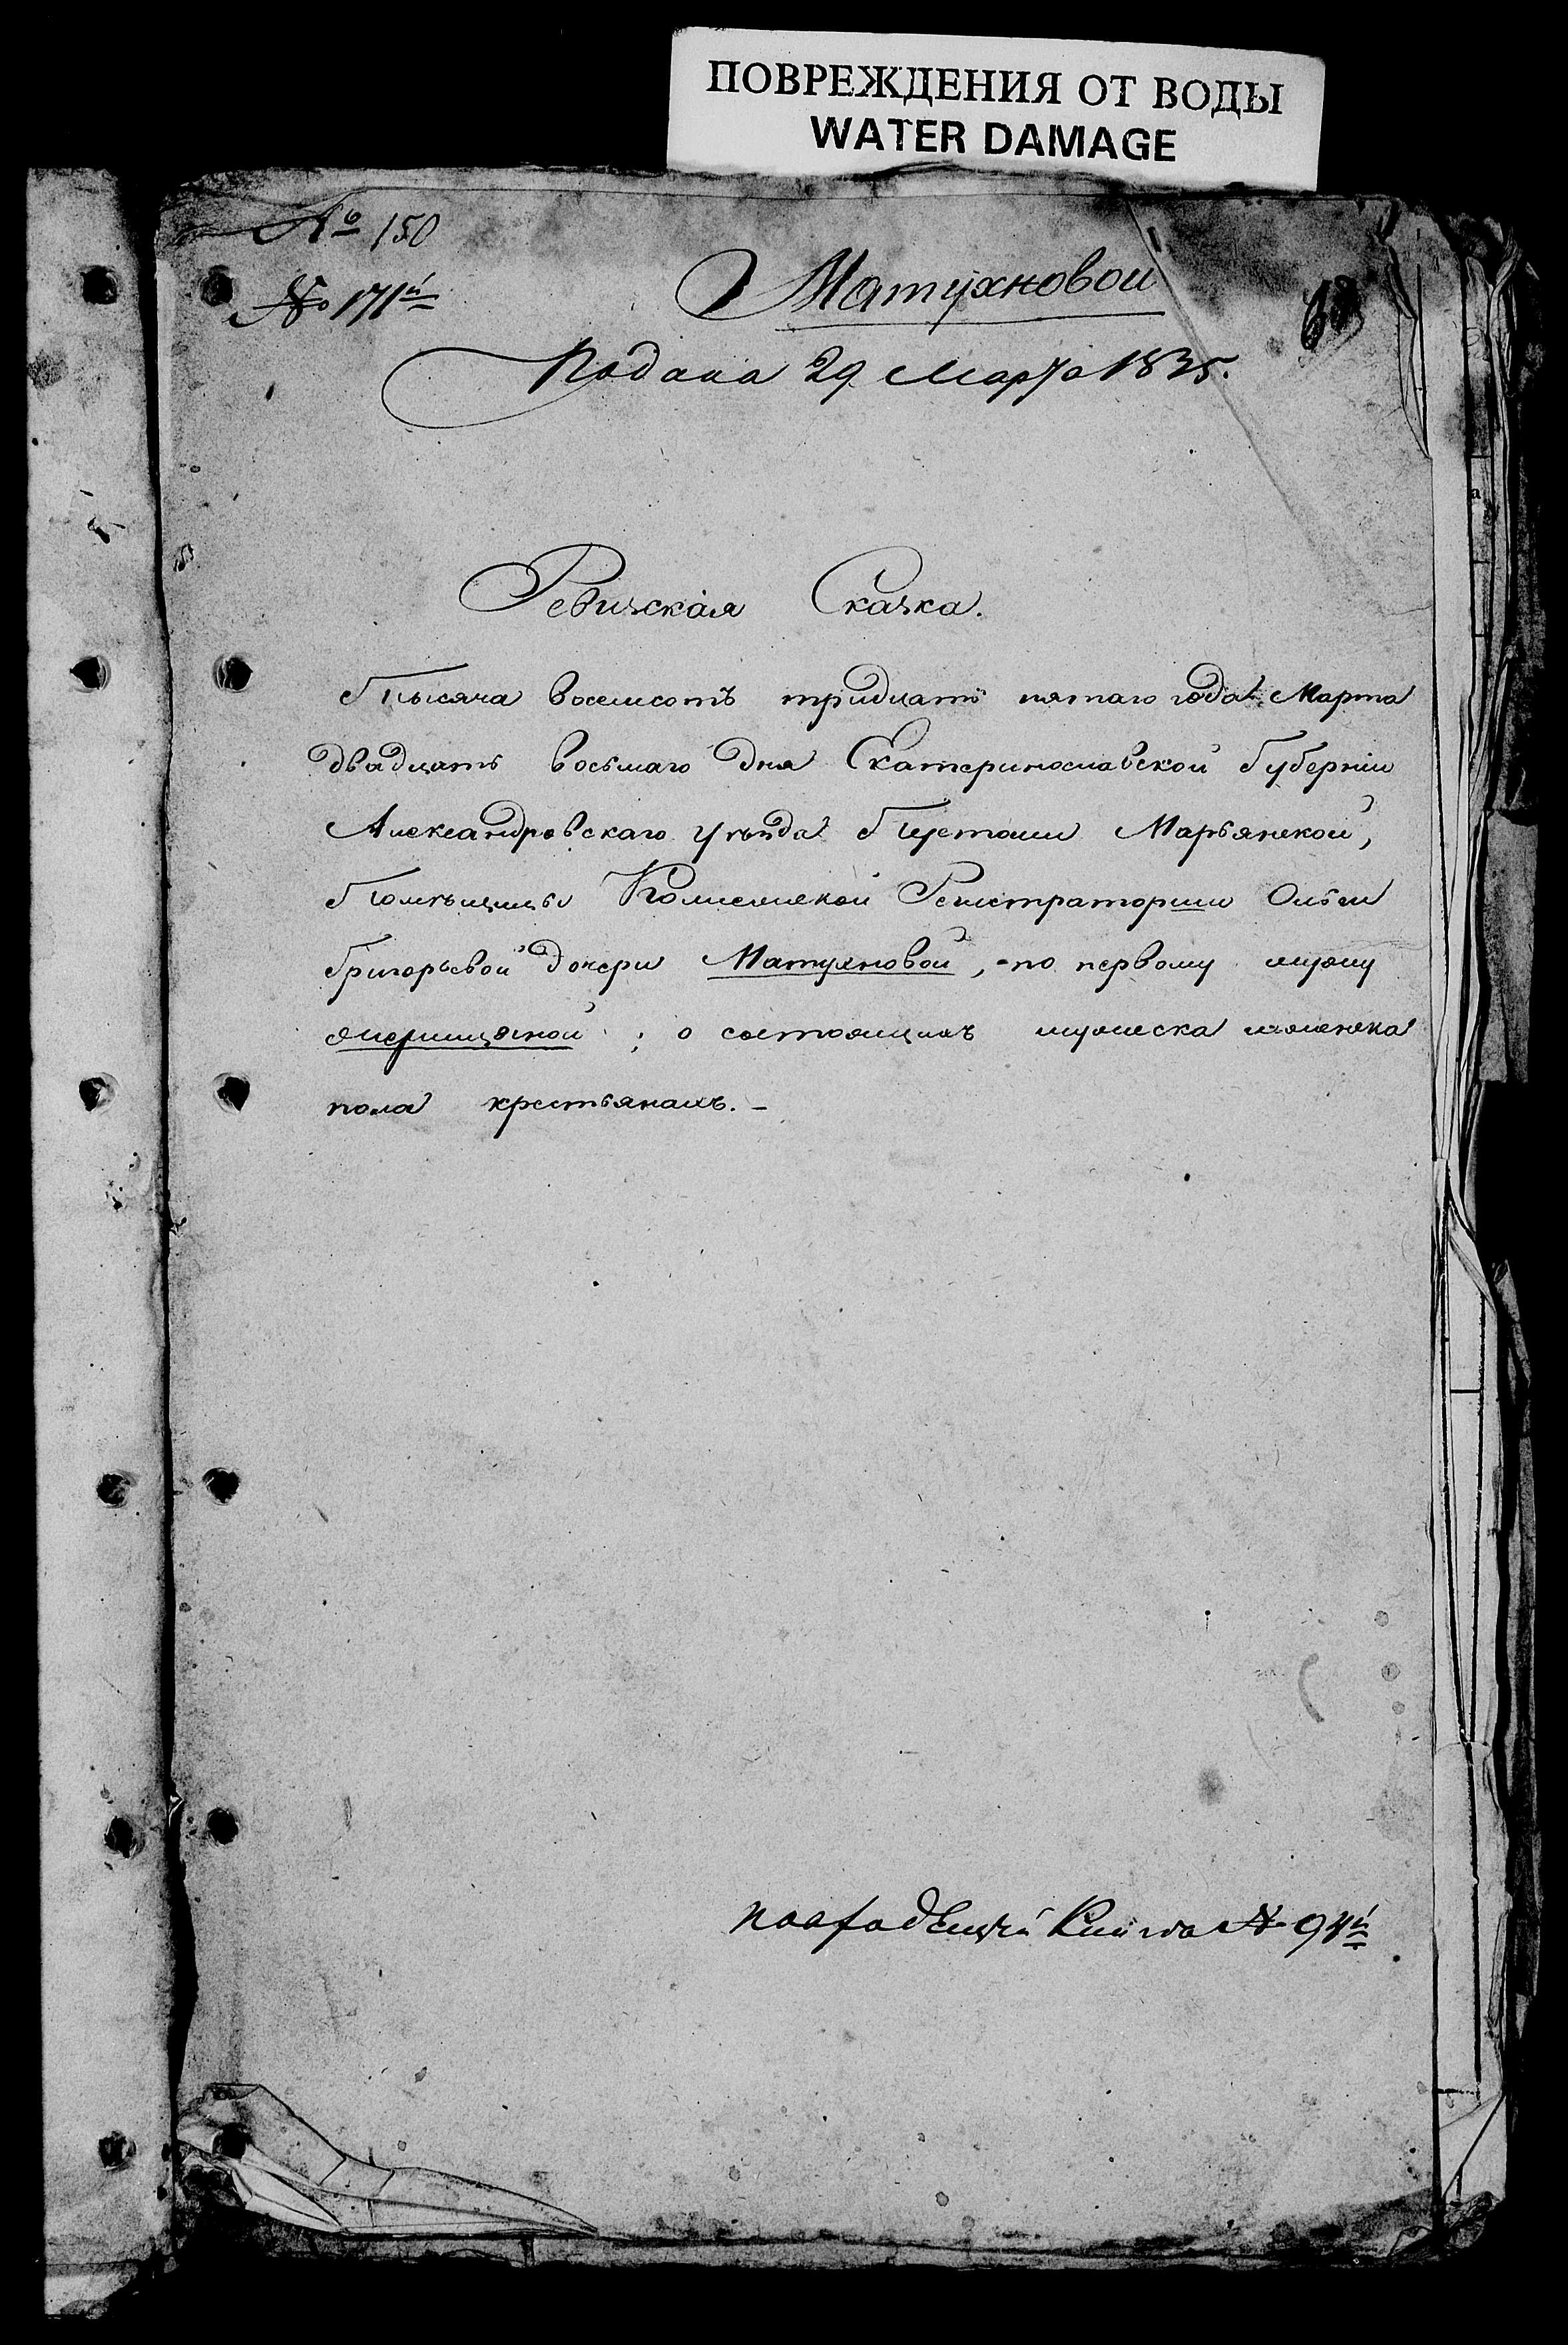 ПОВРЕЖДЕНИЯ ОТ ВОДЫ
WATER DAMAGE
№ 150
№ 171й
Матухновой
Подана 29 Марта 1835.
Ревижская Сказка.
Тысяча восемсотъ тридцать пятаго года Марта
двадцать восьмаго дня Екатеринославской Губерніи
Александровскаго уѣзда Пустоши Марьянской,
Помѣщицы Колежской Регистраторши Ольги
Григорьевой дочери Матухновой, - по первому мужу
; о состоящихъ мужеска и женска
пола крестьянахъ. -
Книга № 94й